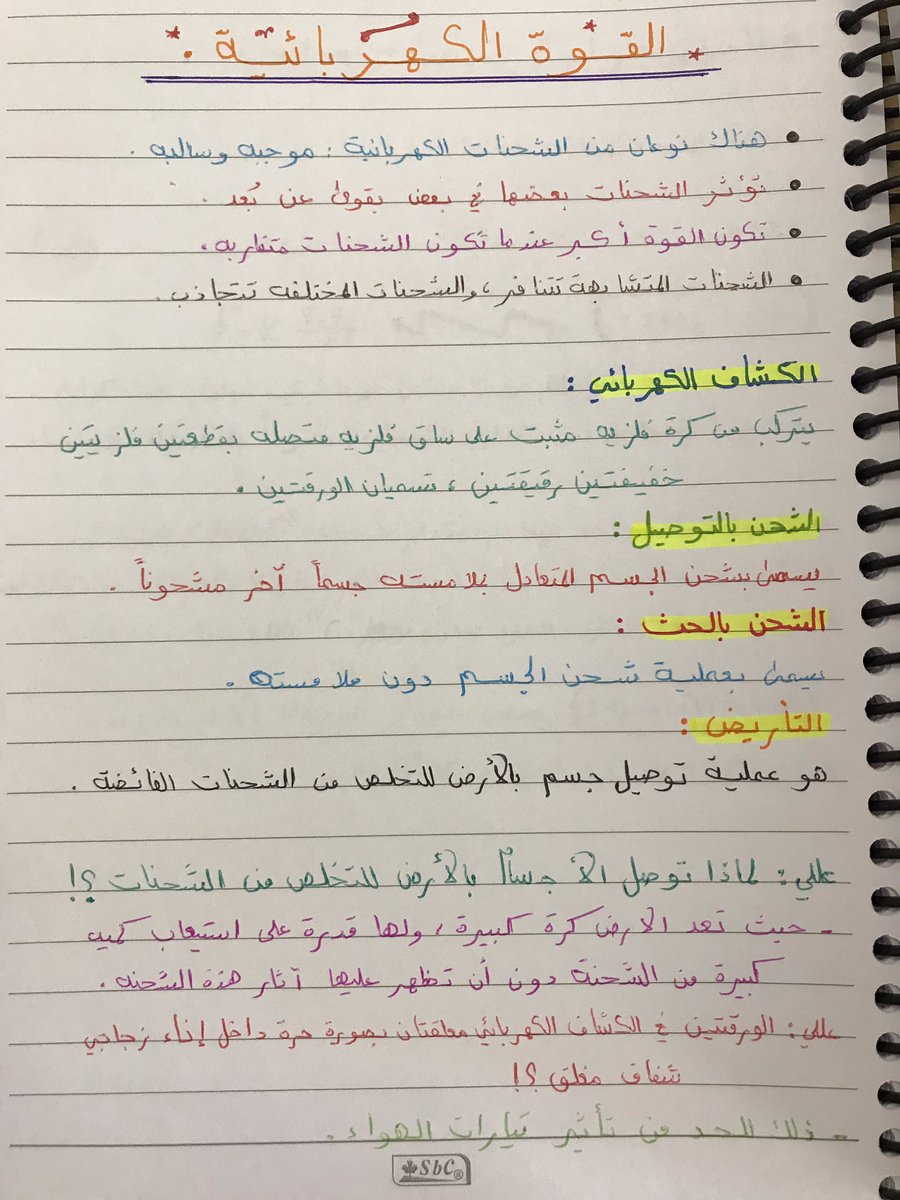 القوة الكهربائية .
هناك نوعان من الشحنات الكهربائية : موجبه وسالبه .
تؤثر الشحنات بعضها في بعض بقوى عن بُعد .
تكون القوة أكبر عندما تكون الشحنات متقاربه .
الشحنات المتشابهة تتنافر ، والشحنات المختلفه تتجاذب .
الكشاف الكهربائي :
يتركب من كرة فلزيه مثبت على ساق فلزيه متصله بقطعتين فلزيتين
خفيفتين رقيقتين ، تسميان الورقتين .
الشحن بالتوصيل :
يسمى بشحن الجسم المتعادل بملامسته جسماً آخر مشحوناً .
الشحن بالحث :
يسمى بعملية شحن الجسم دون ملامسته .
التأريض :
هو عملية توصيل جسم بالأرض للتخلص من الشحنات الفائضة .
عللي : لماذا توصل الأجسام بالأرض للتخلص من الشحنات ؟!
- حيث تعد الارض كرة كبيرة ، ولها قدرة على استيعاب كميه
كبيرة من الشحنة دون أن تظهر عليها آثار هذه الشحنه .
عللي : الورقتين في الكشاف الكهربائي معلقتان بصورة حرة داخل إناء زجاجي
شفاف مغلق ؟!
- ذلك للحد من تأثير تيارات الهواء .
SbC®